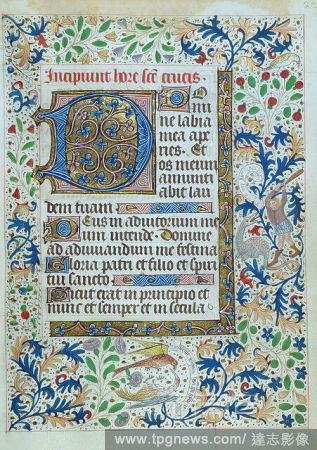 Incipiunt hore scē crucis.
Domi
ne labia
mea ape
ries. Et
os meum
annunti
abit lau
dem tuam
Deus in adiutorium me
um intende. Domine
ad adiuvandum me festina
Gloria patri et filio et spiri
tui sancto
Sicut erat in principio et
nunc et semper et in secula
www.tpgnews.com/ 達志影像